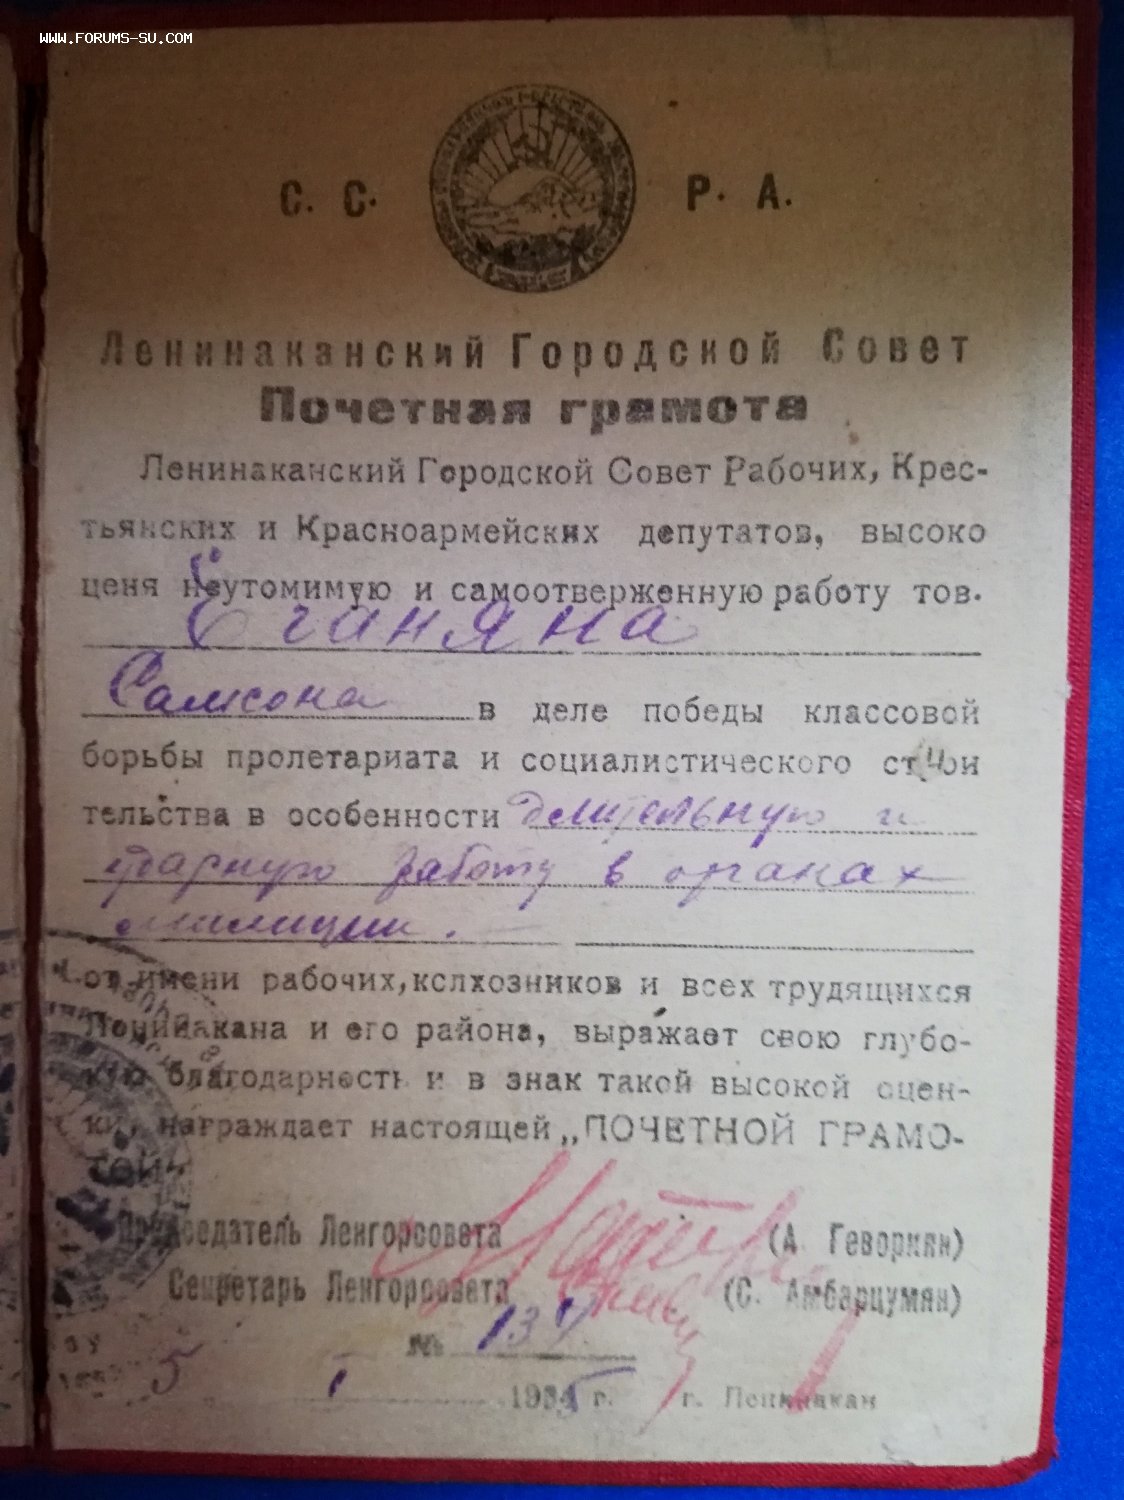 WWW.FORUMS-SU.COM
С. С. Р. А.
Ленинаканский Городской Совет
Почетная грамота
Ленинаканский Городской Совет Рабочих, Крес-
тьянских и Красноармейских депутатов, высоко
ценя неутомимую и самоотверженную работу тов.
Еганяна
Самсона в деле победы классовой
борьбы пролетариата и социалистического строи
тельства в особенности длительную и
ударную работу в органах
милиции.
от имени рабочих, колхозников и всех трудящихся
Ленинакана и его района, выражает свою глубо-
кую благодарность и в знак такой высокой оцен-
ки, награждает настоящей „ПОЧЕТНОЙ ГРАМО-
ТОЙ".
Председатель Ленгорсовета (А. Геворкян)
Секретарь Ленгорсовета (С. Амбарцумян)
№ 134
5 I 1935 г. г. Ленинакан